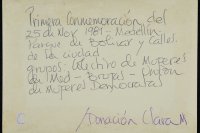 Primera Conmemoración del
25 de Nov 1981 - Medellín
Parque de Bolívar y Calles
de la ciudad
grupos: de Mujeres
de Med - Brujas - Unión
de Mujeres Demócratas
Donación Clara M